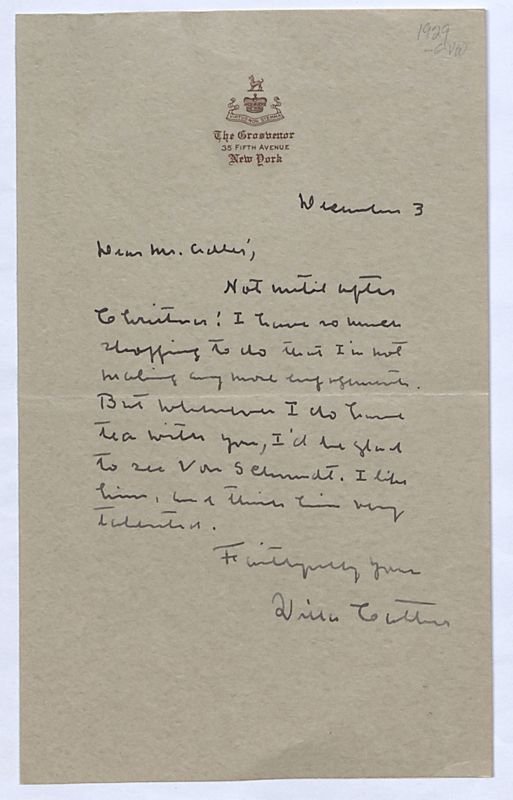 1929
VIRTUS NON STEMMA
The Grosvenor
35 FIFTH AVENUE
New York
December 3
Dear Mr. Adler,
Not until after
Christmas! I have so much
shopping to do that I'm not
making any more engagements.
But whenever I do have
tea with you, I'd be glad
to see Von Schmidt. I like
him, and think him very
talented.
Faithfully yours
Willa Cather